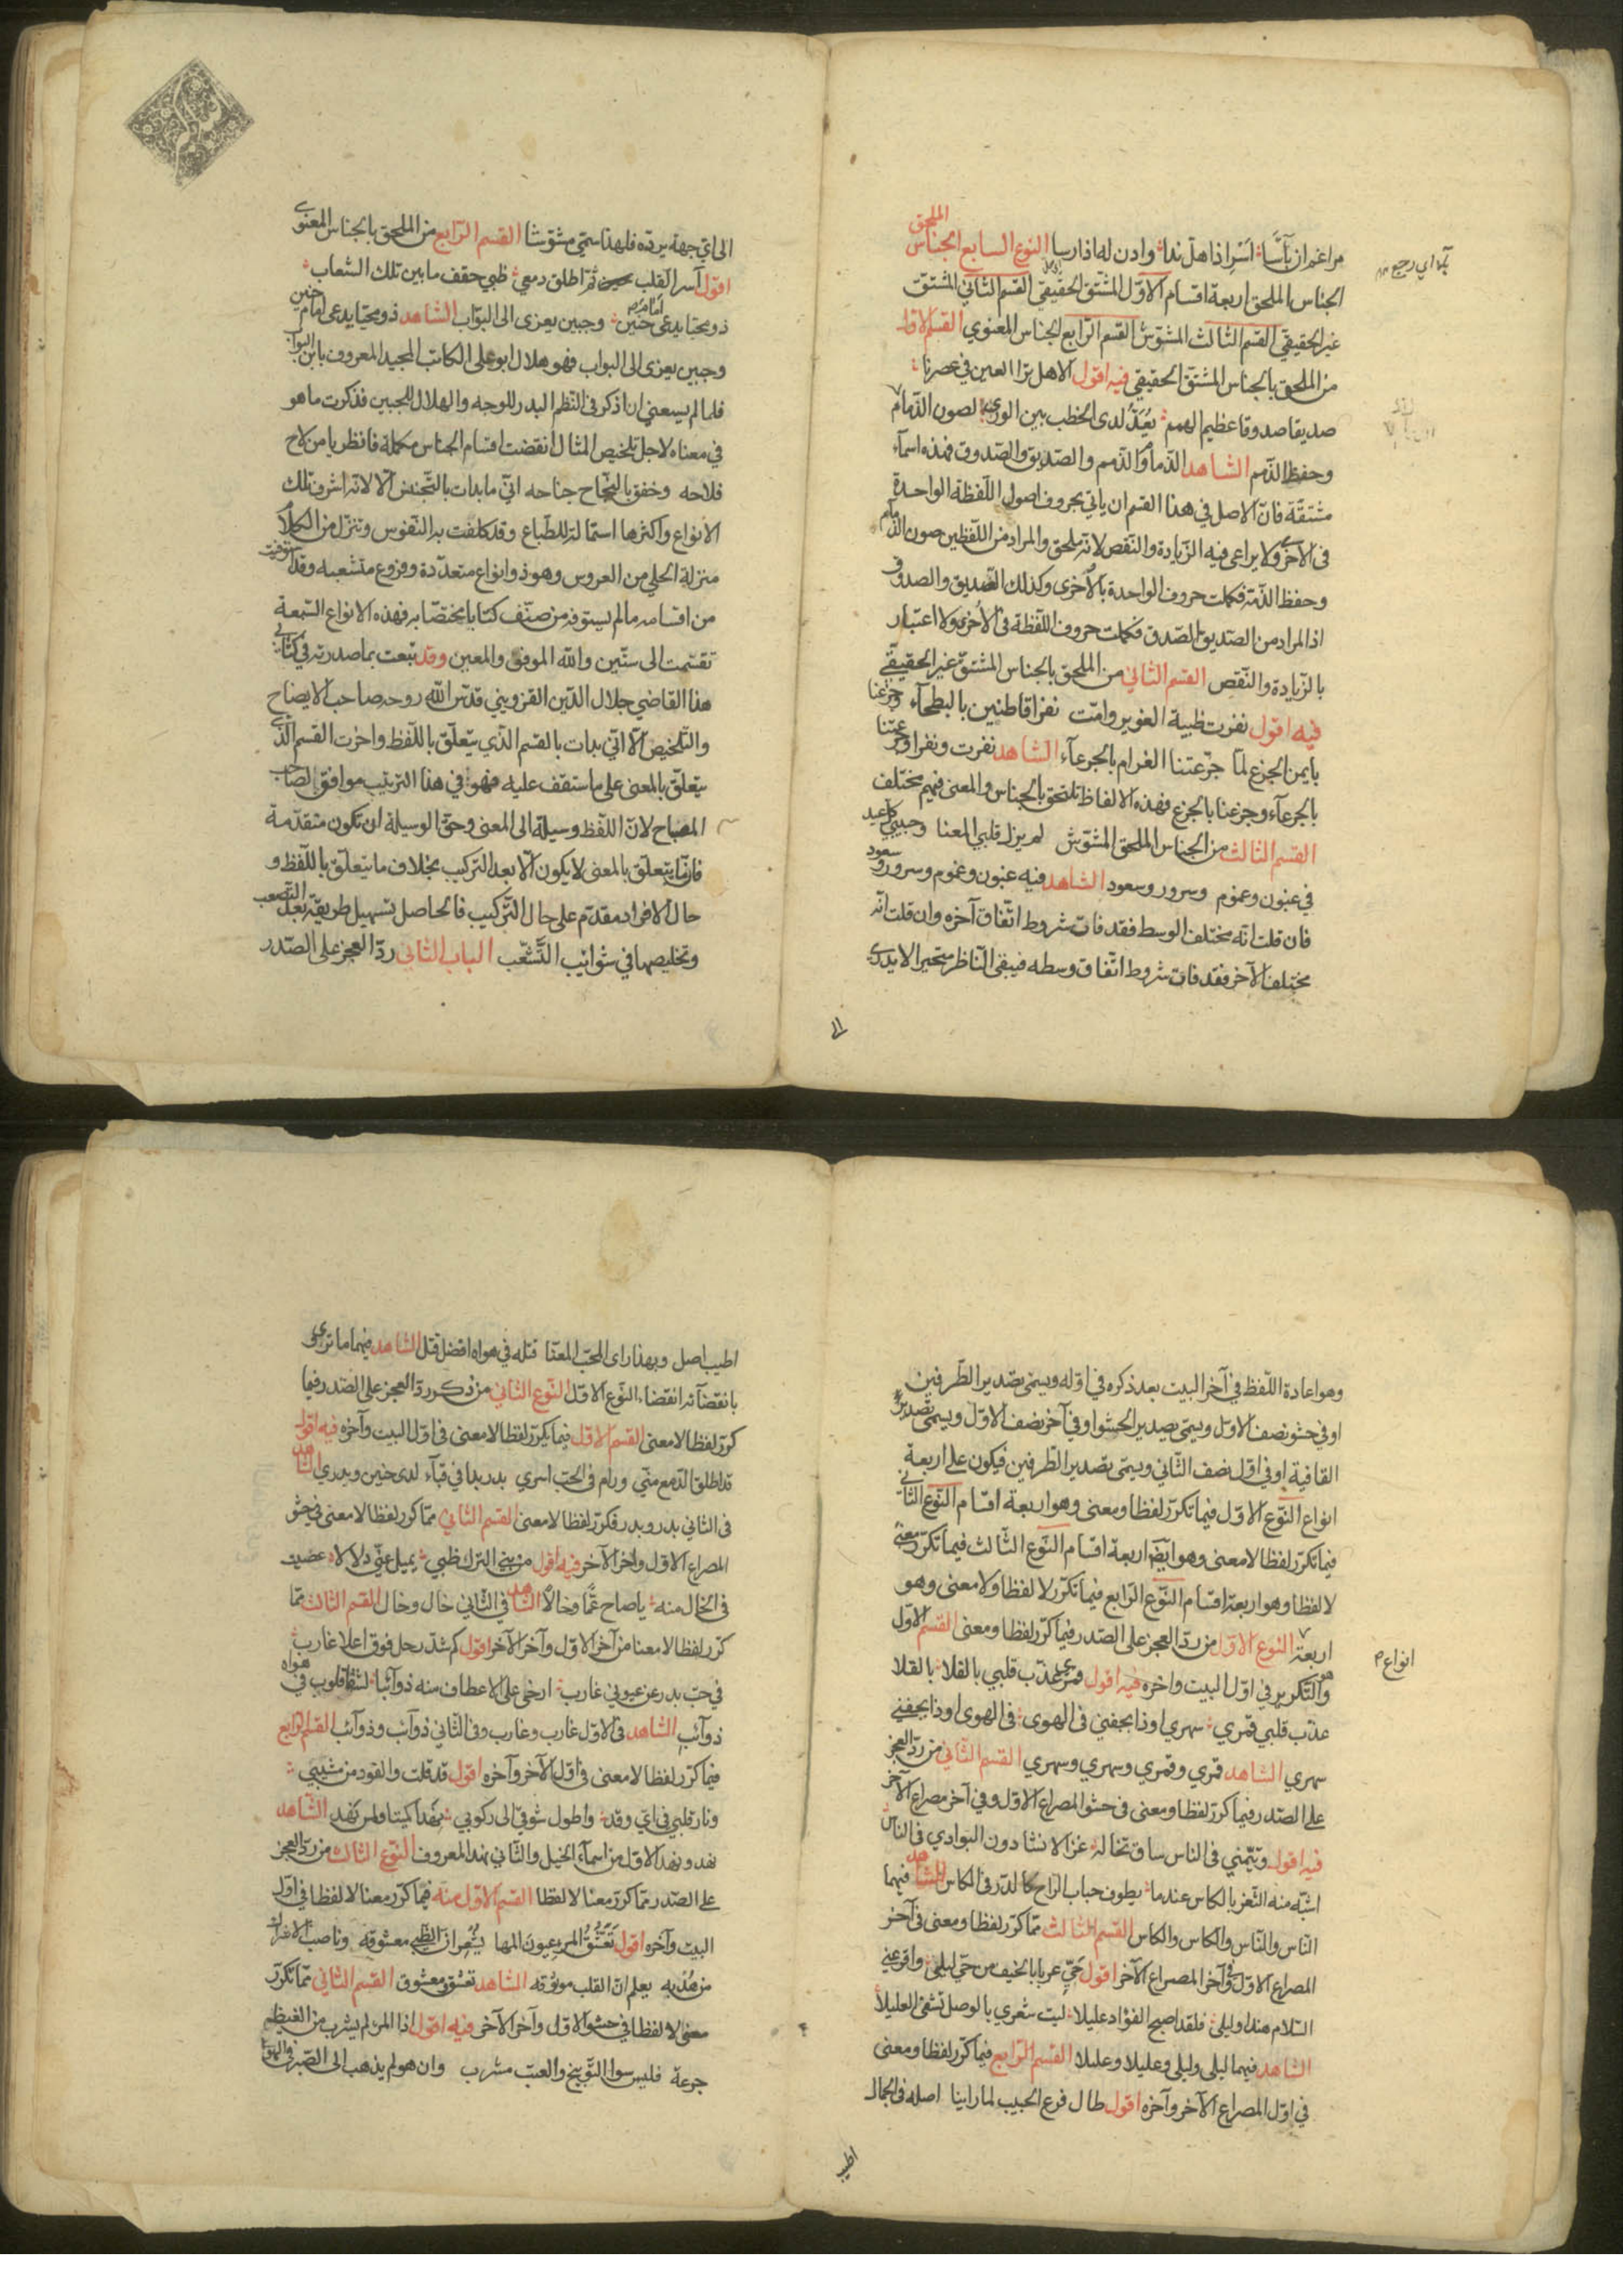 الملحق
مراغم از بأسًا اسر اذا هل ندا وادن له اذا رسا النوع السابع الجناس
الجناس الملحق اربعة اقسام الاوّل المشتق الحقيقي القسم الثاني المشتق
غير الحقيقي القسم الثالث المشوّش القسم الرّابع الجناس المعنوي القسم الاوّل
من الملحق بالجناس المشتق الحقيقي فيه اقول الاهل ترا العين في عصرنا
صديقا صدوقا عظيم الهمم يُعَدُّ لدى الخطب بين الورى لصون الذمام
وحفظ الذّمم الشاهد الذمام والذمم والصّديق والصّدوق فهذه اسمآء
مشتقّة فانّ الاصل في هذا القسم ان ياتي بحروف اصول اللّفظة الواحدة
فى الاخرى ولا يراعى فيه الزّيادة والنّقص لانّه ملحق والمراد من اللّفظين صون الذمام
وحفظ الذّمة فكملت حروف الواحدة بالأخرى وكذلك الصّديق والصدوق
اذ المراد من الصّديق الصّدق فكملت حروف اللّفظة فى الأخرى ولا اعتبار
بالزّيادة والنّقص القسم الثاني من الملحق بالجناس المشتقّ غير الحقيقيّ
فيه اقول نفرت ظبية الغوير وامّت نفرا قاطنين بالبطحآء وجزعنا
بايمن الجزع لمّا جرّعتنا الغرام بالجرعآء الشاهد نفرت ونفرا وجرعتنا
بالجرعآء وجزعنا بالجزع فهذه الالفاظ تلتحق بالجناس والمعنى فيهم مختلف
القسم الثالث من الجناس الملحق المشوّش لم يزل قلبي المعنا وحبيبي كل عيد
في غبون وغموم وسرور وسعود الشاهد فيه غبون وغموم وسرور وسعود
فان قلت انّه مختلف الوسط فقد فات شروط اتّفاق آخره وان قلت انّه
مختلف الآخر فقد فات شروط اتّفاق وسطه فيبقى النّاظر متحيرا لا يدرى
الى
الى ايّ جهة يردّه فلهذا سمّي مشوّشا القسم الرّابع من الملحق بالجناس المعنوى
اقول آسر القلب ثمّ اطلق دمعي ظبي حقف ما بين تلك الشعاب
ذو محيّا يدعى امام حنين وجبين يعزى الى البوّاب الشاهد ذو محيّا يدعى امام حنين
وجبين يعزى الى البواب فهو هلال ابو على الكاتب المجيد المعروف بابن البوّاب
فلما لم يسعنى ان اذكر فى النّظم البدر للوجه والهلال للجبين فذكرت ما هو
في معناه لاجل تلخيص المثال انقضت اقسام الجناس مكملة فانظر يا من لاح
فلاحه وخفق بالنّجاح جناحه انّي ما بدات بالتّجنيس الّا لانّه اشرف تلك
الانواع واكثرها استمالة للطّباع وقد كلفت به النّفوس وتنزّل من الكلام
منزلة الحلي من العروس وهو ذو انواع متعدّدة وفروع متشعبه وقد استوفيت
من اقسامه ما لم يستوفه من صنّف كتابا مختصّا به فهذه الانواع السّبعة
تقسّمت الى ستّين والله الموفق والمعين وقد تبعت بما صدرته في كتابي
هذا القاضي جلال الدّين القزويني قدّس الله روحه صاحب الايضاح
والتلخيص الّا انّي بدات بالقسم الذّي يتعلّق باللّفظ واخرت القسم الّذى
يتعلّق بالمعنى على ما ستقف عليه فهو في هذا الترتيب موافق لصاحب
المصباح لانّ اللّفظ وسيلة الى المعنى وحقّ الوسيلة ان تكون متقدّمة
فانّ ما يتعلّق بالمعنى لا يكون الّا بعد التركيب بخلاف ما يتعلّق باللّفظ و
حال الافراد مقدّم على حال التّركيب فالحاصل تسهيل طريقته بعد التصعب
وتخليصها في شوائب التّشعّب الباب الثاني ردّ العجز على الصّدر
وهو اعادة اللّفظ في آخر البيت بعد ذكره في اوّله ويسمى تصدير الطّرفين
او في حشو نصف الاوّل ويسمّى تصدير الحشو او في آخر نصف الاوّل ويسمّى تصدير
القافية او في اوّل نصف الثّاني ويسمّى تصدير الطّرفين فيكون على اربعة
انواع النّوع الاوّل فيما تكرّر لفظا ومعنى وهو اربعة اقسام النّوع الثّاني
فيما تكرّر لفظا لا معنى وهو ايضا اربعة اقسام النّوع الثّالث فيما تكرّر معنى
لا لفظا وهو اربعة اقسام النّوع الرّابع فيما تكرّر لا لفظا ولا معنى وهو
اربعة النّوع الاوّل من ردّ العجز على الصّدر فيما كرّر لفظا ومعنى القسم الاوّل
انواع
هو والتّكرير في اوّل البيت واخره فيه اقول قمرى عذّب قلبي بالقلا بالقلا
عذّب قلبي قمري سهري اوذا بجفني فى الهوى فى الهوى اوذا بجفني
سهري الشاهد قمري وقمري وسهري وسهري القسم الثّاني من ردّ العجز
على الصّدر فيما كرّر لفظا ومعنى فى حشو المصراع الاوّل وفي آخر مصراع الآخر
فيه اقول وتيّمني فى الناس ساق تخاله غزالا نشا دون البوادي فى الناس
اشبّه منه الثّغر بالكاس عندما يطوف حباب الرّاح كالدّر فى الكاس الشّاهد فيهما
النّاس والنّاس والكاس والكاس القسم الثالث ممّا كرّر لفظا ومعنى فى آخر
المصراع الاوّل وآخر المصراع الآخر اقول حيّ عربا بالخيف من حيّ ليلى واقرعنّي
السّلام هندا وليلى فلقد اصبح الفؤاد عليلا ليت شعري بالوصل تشفى العليلا
الشاهد فيهما ليلى وليلى وعليلا وعليلا القسم الرّابع فيما كرّر لفظا ومعنى
في اوّل المصراع الآخر وآخره اقول طال فرع الحبيب لما راينا اصله فى الجمال
اطيب
اطيب اصل وبهذا راى المحبّ المعنّا قتله في هواه افضل قتل الشاهد فيهما ما ترى
بانقضآئه انقضاء النّوع الاوّل النّوع الثاني من ذكر ردّ العجز على الصّدر فيما
كرّر لفظا لا معنى القسم الاوّل فيما يكرّر لفظا لا معنى فى اوّل البيت وآخره فيه اقول
قد اطلق الدّمع منّي ورام فى الحبّ اسري بدر بدا في قبآء لدى حنين وبدري الشاهد
فى الثاني بدر وبدر فكرّر لفظا لا معنى القسم الثاني ممّا كرر لفظا لا معنى في حشو
المصراع الاوّل واخر الآخر فيه اقول من بني الترك ظبي يميل عنّي دلالا عضيت
فى الخال منه يا صاح عمًّا وخالا الشّاهد فى الثّاني خال وخال القسم الثالث ممّا
كرّر لفظا لا معنا من آخر الاوّل وآخر الآخر اقول كم شدّ رحل فوق اعلا غارب
في حبّ بدر عن عيوني غارب ارخى على الاعطاف منه ذوآئبا لشقا قلوب في هواه
ذوآئب الشاهد فى الاوّل غارب وغارب وفى الثّاني ذوآئب وذوآئب القسم الرّابع
فيما كرّر لفظا لا معنى فى اوّل الآخر وآخره اقول قد قلت والفود من شيبي
ونار قلبي في ايّ وقد واطول شوقي الى ركوبي نهدا كميتا ولمس نهد الشّاهد
نهد ونهد الاوّل من اسمآء الخيل والثّاني نهد المعروف النّوع الثالث من ردّ العجز
على الصّدر ممّا كرّر معنا لا لفظا القسم الاوّل منه فيما كرّر معنا لا لفظا في اوّل
البيت وآخره اقول تَعَشُّقُ المرء عيون المها يُشْعر انّ الظّبي معشوقه وناصب الاشراك
من هُدْبِه يعلم انّ القلب موثوقه الشاهد تعشّق ومعشوق القسم الثّاني ممّا تكرّر
معنى لا لفظا في حشو الاوّل وآخر الآخر فيه اقول اذا المرء لم يشرب من الغيظ
جرعة فليس سوا التّوبيخ والعتب مشرب وان هو لم يذهب الى الصّبر فى الهوى